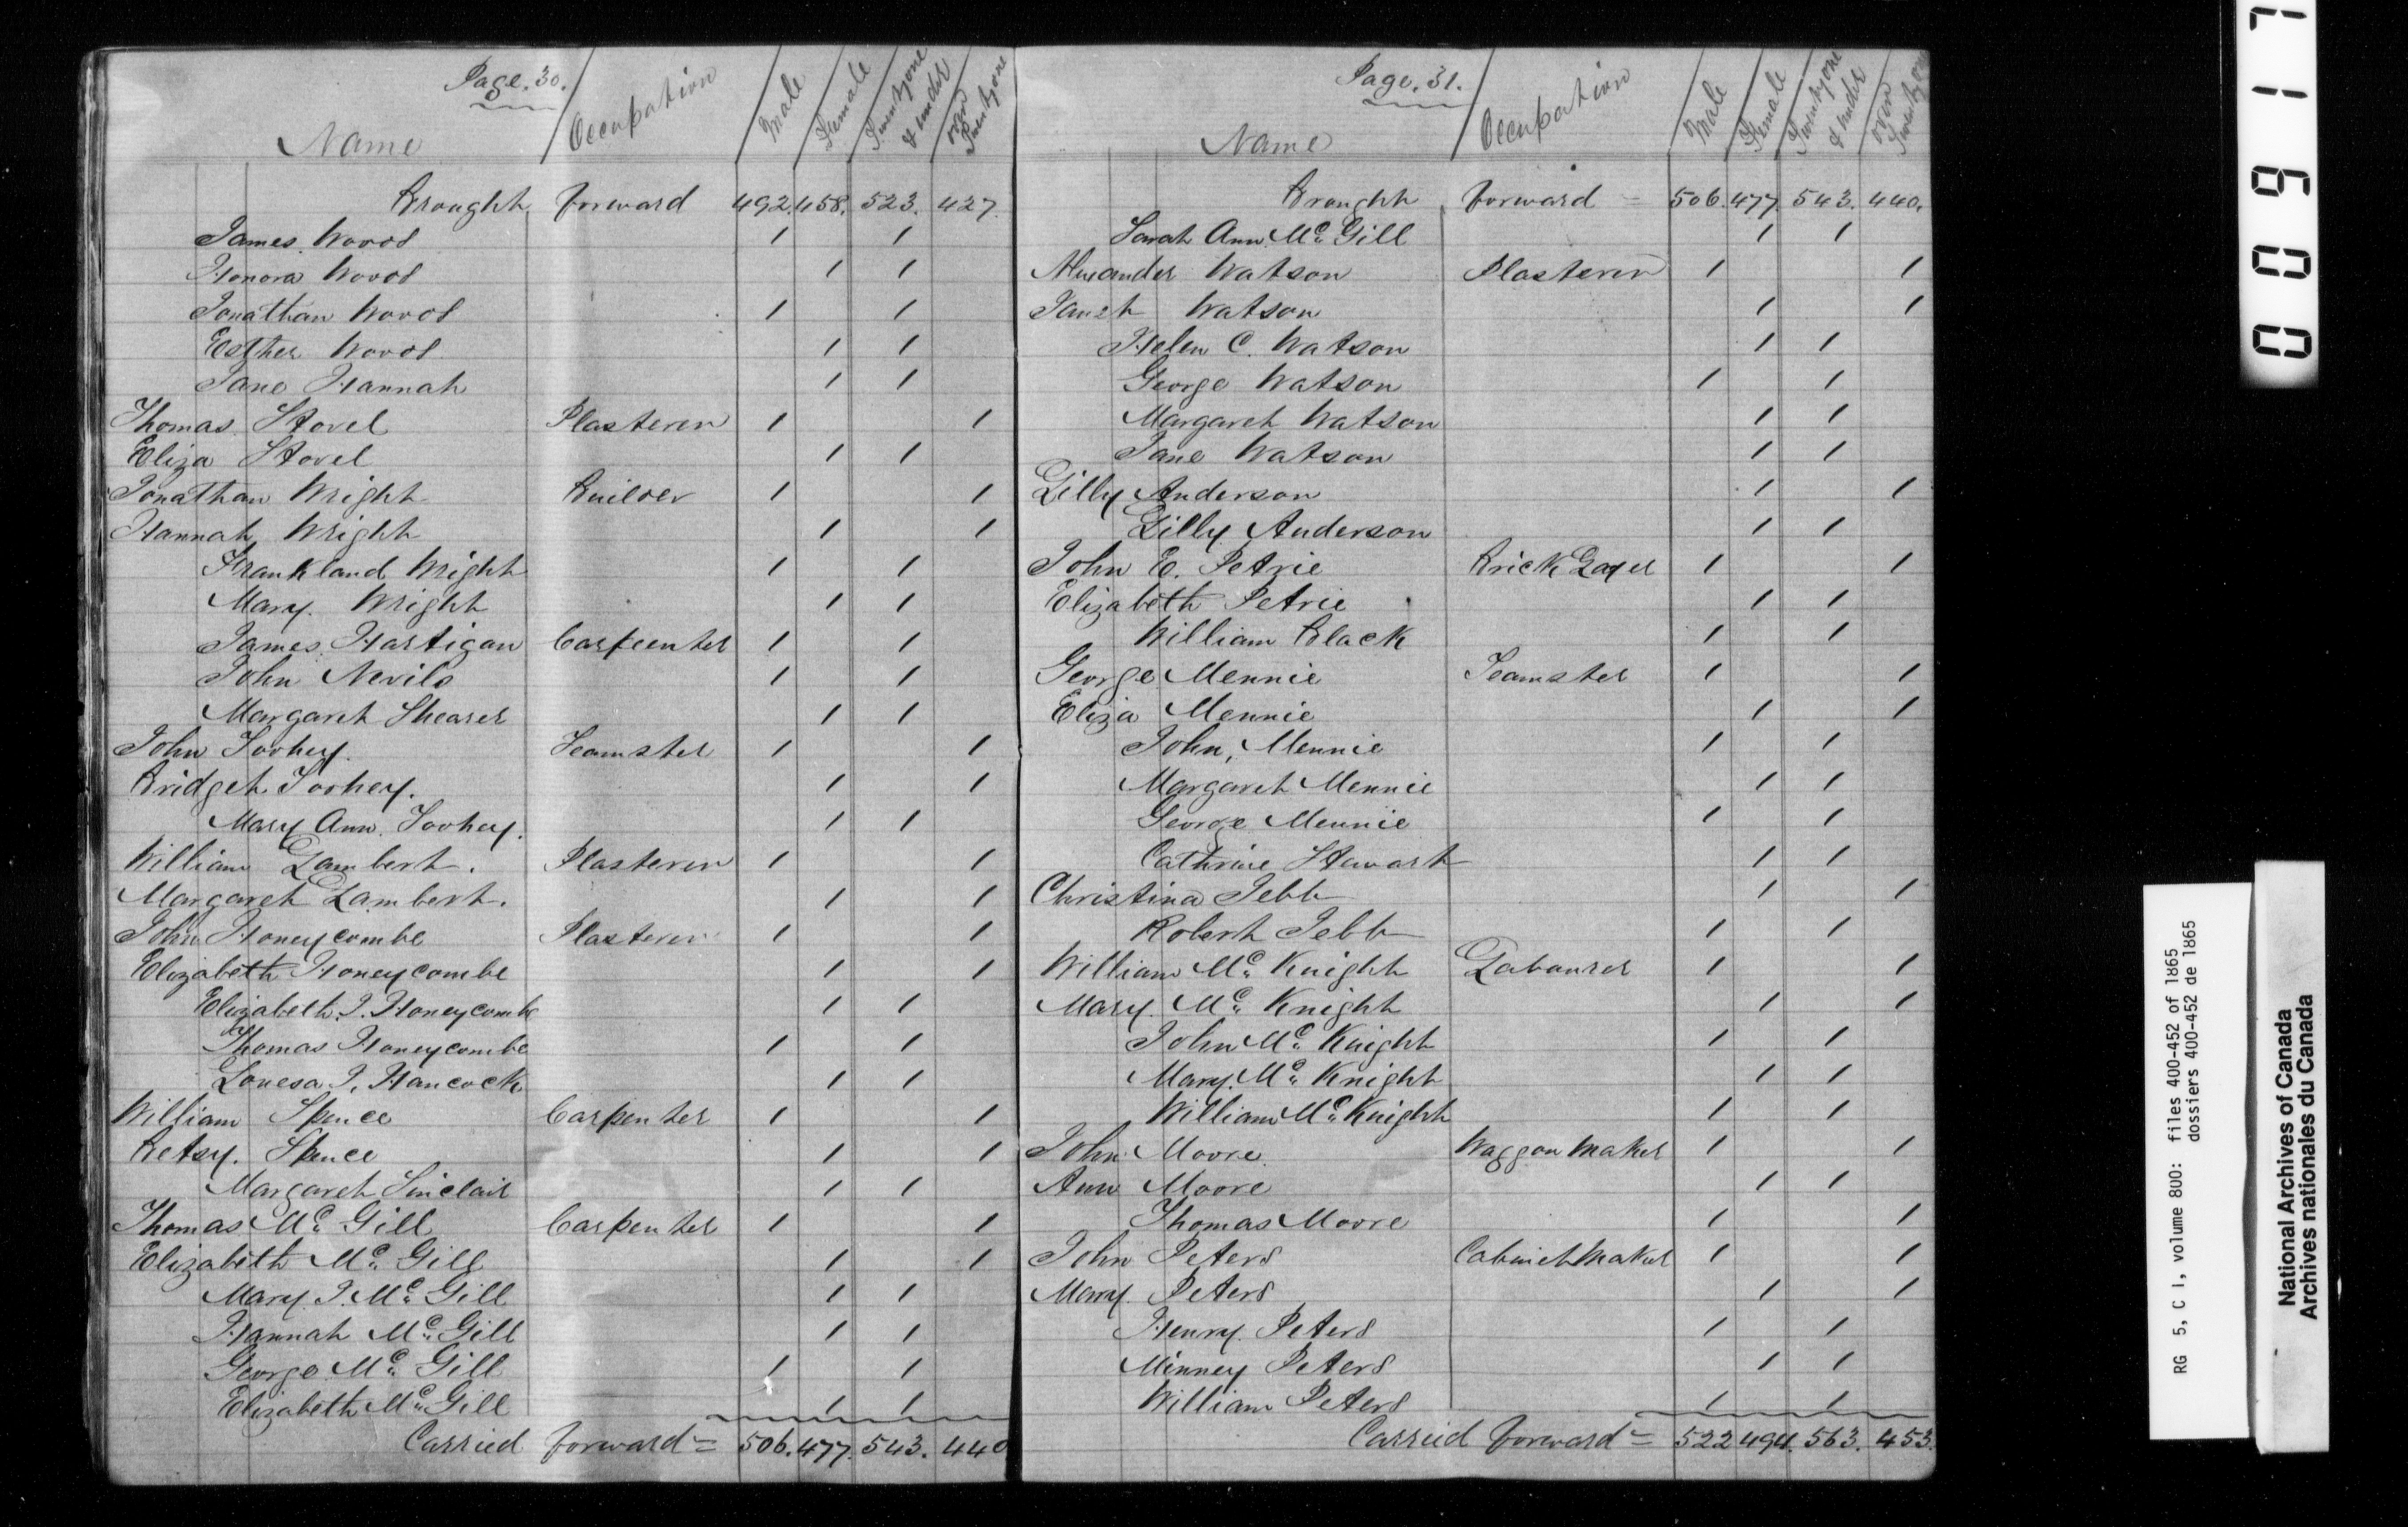 Page. 30.
Name Occupation Male Female Twenty one & under over Twenty one
Brought forward 492. 458. 523. 427.
James Wood / /
Honora Wood / /
Jonathan Wood / /
Esther Wood / /
Jane Hannah / /
Thomas Stovel Plasterer / /
Eliza Stovel / /
Jonathan Wright Builder / /
Hannah Wright / /
Frankland Wright / /
Mary Wright / /
James Hartigan Carpeenter / /
John Nevils / /
Margaret Shearer / /
John Toohey Teamster / /
Bridget Toohey. / /
Mary Ann Toohey. / /
William Lambert. Plasterer / /
Margaret Lambert. / /
John Honeycombe Plasterer / /
Elizabeth Honeycombe / /
Elizabeth J. Honeycombe / /
Thomas Honeycombe / /
Louesa J. Hancock / /
William Spence Carpenter / /
Betsy. Spence / /
Margaret Sinclair / /
Thomas Mc Gill Carpenter / /
Elizabeth Mc Gill / /
Mary J. Mc Gill / /
Hannah Mc Gill / /
George Mc Gill / /
Elizabeth Mc Gill / /
Carried forward = 506. 477. 543. 440
Page. 31.
Name Occupation Male Female Twenty one & under over Twenty one
Brought forward = 506. 477. 543. 440.
Sarah Ann Mc Gill / /
Alexander Watson Plasterer / /
Janet Watson / /
Helen C. Watson / /
George Watson / /
Margaret Watson / /
Jane Watson / /
Lilly Anderson / /
Lilly Anderson / /
John E. Petrie Brick Layer / /
Elizabeth Petrie / /
William Black / /
George Mennie Teamster / /
Eliza Mennie / /
John, Mennie / /
Margaret Mennie / /
George Mennie / /
Cathrine Stewart / /
Christina Jebb / /
Robert Jebb / /
William Mc Knight Labourer / /
Mary. Mc Knight / /
John Mc Knight / /
Mary. Mc Knight / /
William Mc Knight / /
John Moore Waggon Maker / /
Ann Moore / /
Thomas Moore / /
John Peters Cabinet Maker / /
Mary. Peters / /
Henry. Peters / /
Minney Peters / /
William Peters / /
Carried forward = 522 494. 563. 453.
000917
RG 5, C 1, volume 800: files 400-452 of 1865
dossiers 400-452 de 1865
National Archives of Canada
Archives nationales du Canada